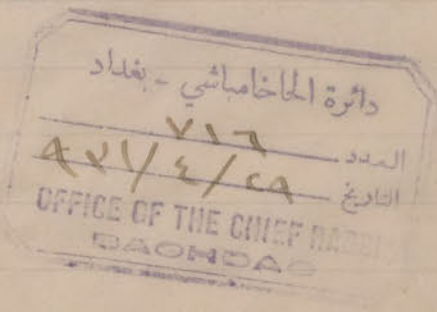 دائرة الحاخامباشي - بغداد
العدد ٧١٦
التاريخ ٩٣١/٤/٢٩
OFFICE OF THE CHIEF RABBI
BAGHDAD